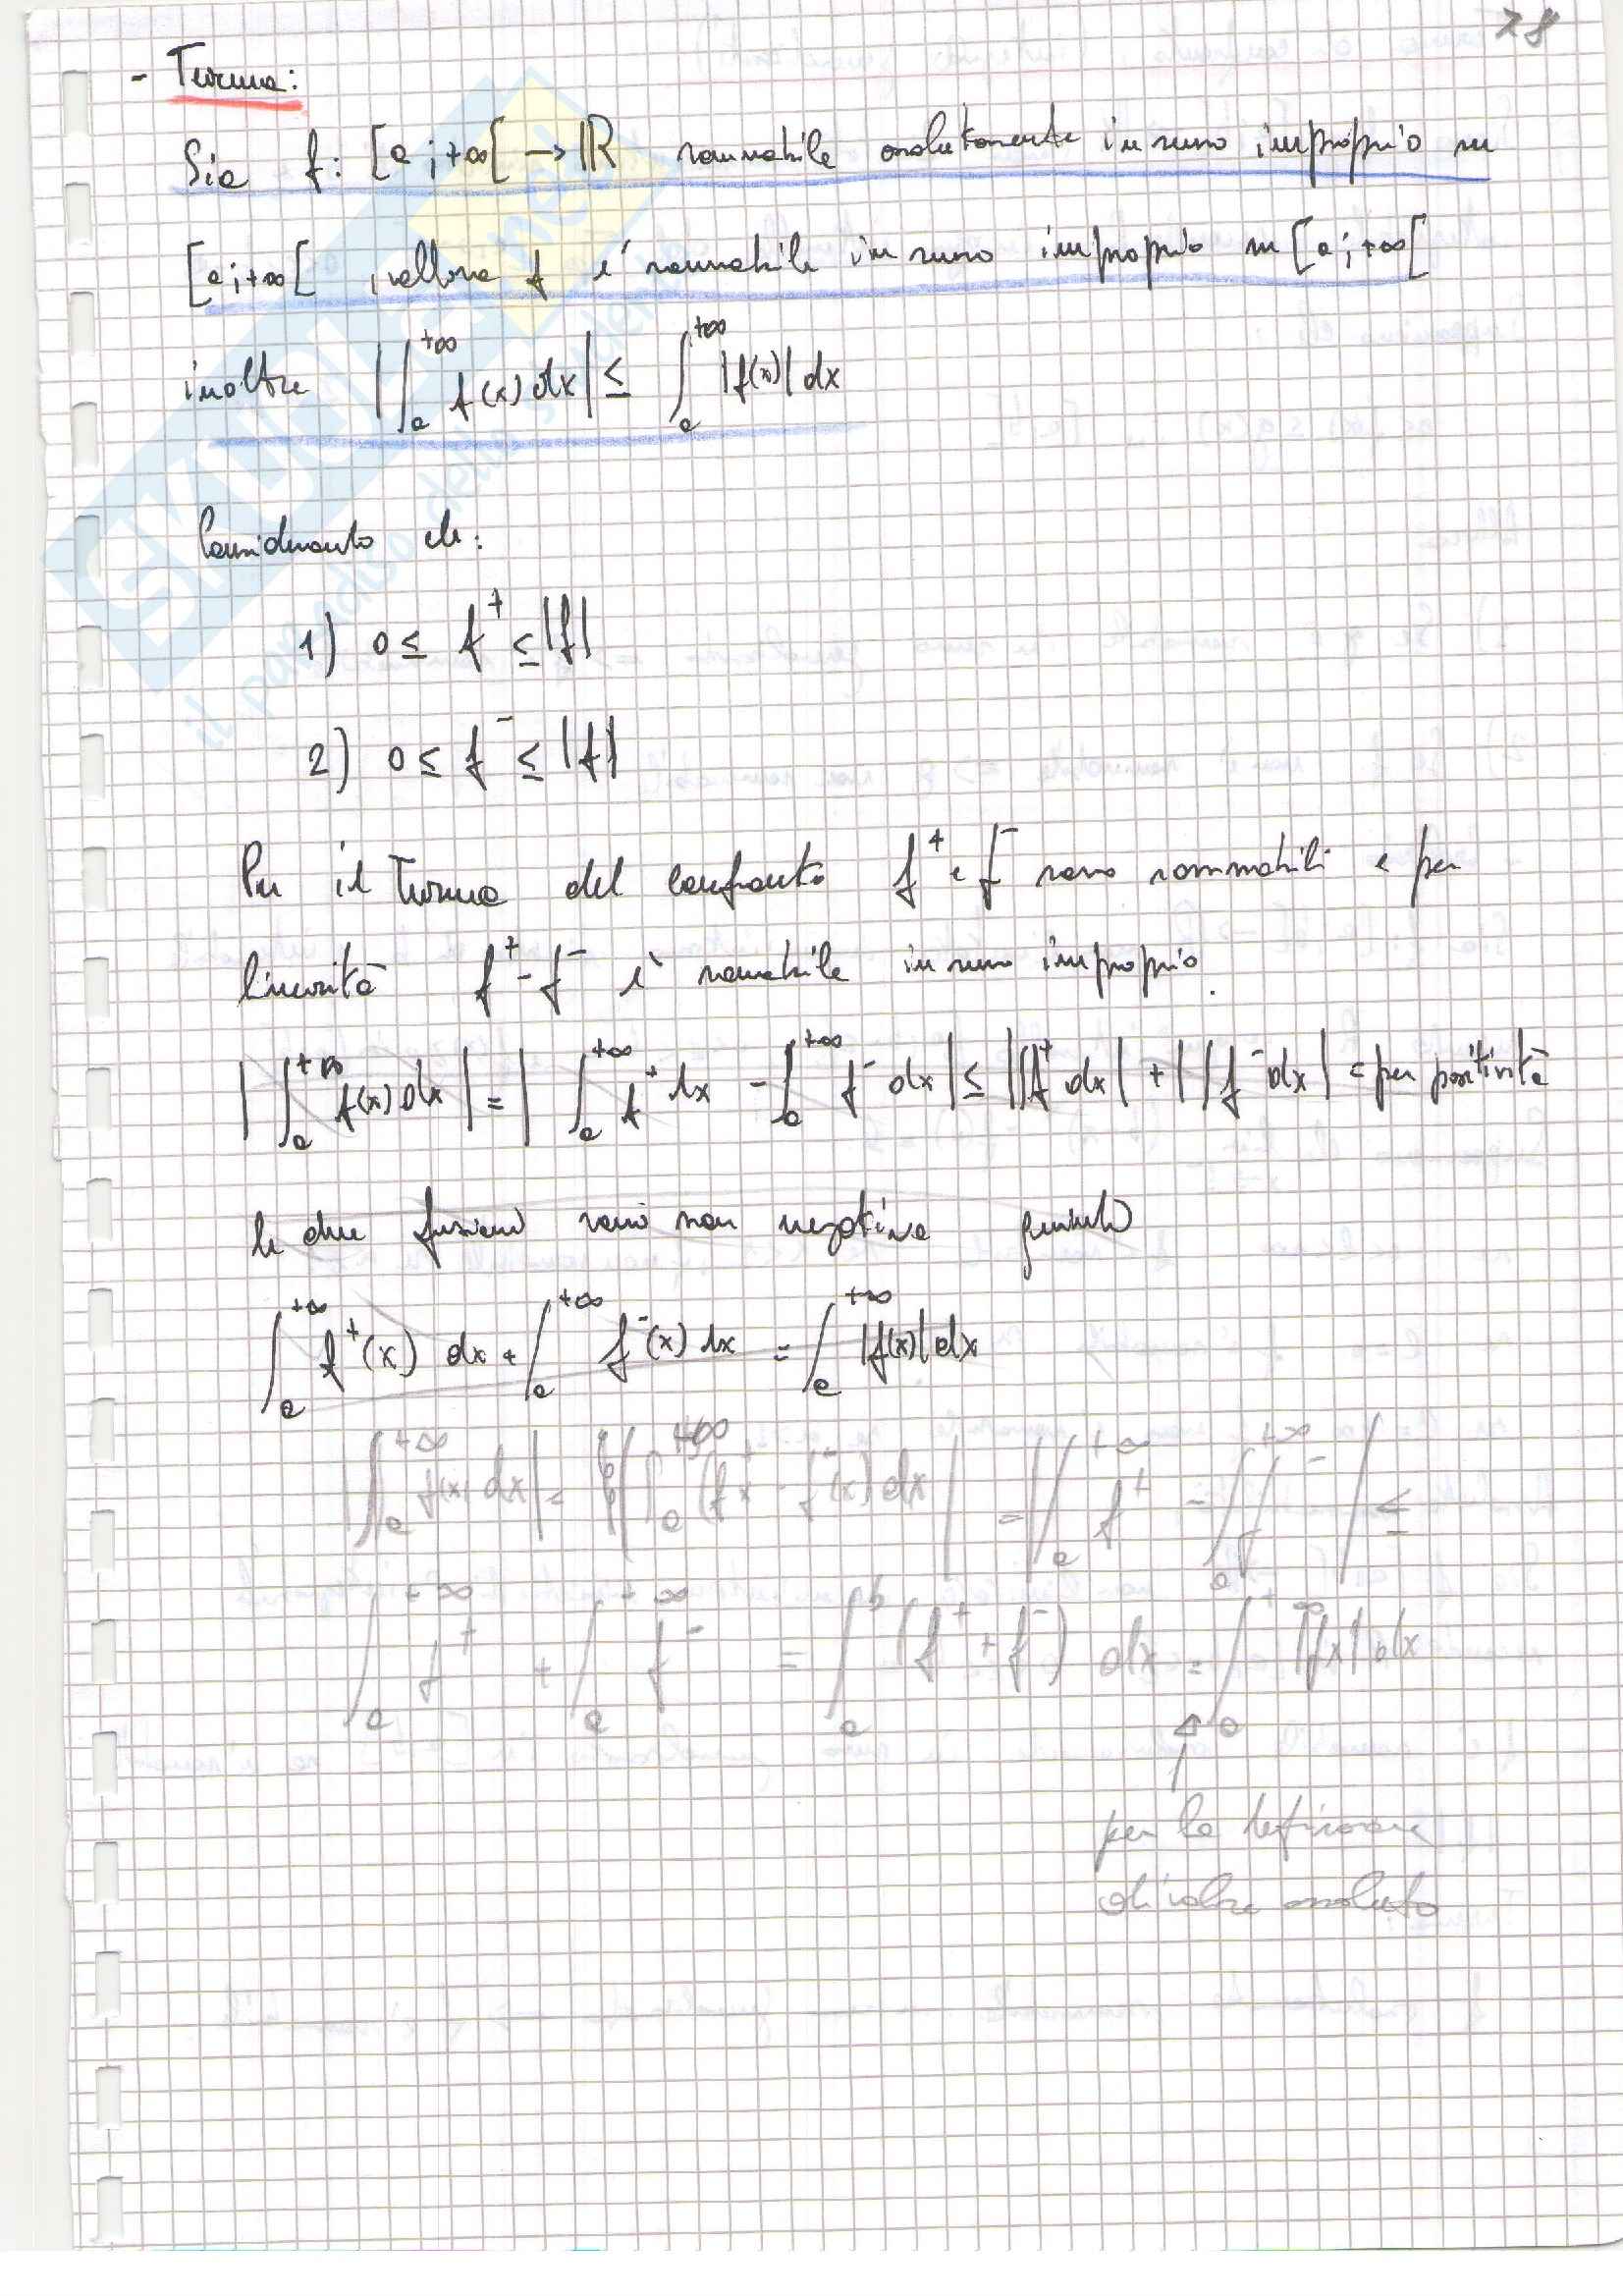 28
- Teorema:
Sia f: [a;+∞[ → ℝ sommabile assolutamente in senso improprio in
[a;+∞[ , allora f è sommabile in senso improprio in [a;+∞[
inoltre |∫_a^{+∞} f(x) dx| ≤ ∫_a^{+∞} |f(x)| dx
Considerato che:
1) 0 ≤ f⁺ ≤ |f|
2) 0 ≤ f⁻ ≤ |f|
Per il Teorema del confronto f⁺ e f⁻ sono sommabili e per
linearità f⁺ - f⁻ è sommabile in senso improprio.
|∫_a^{+∞} f(x) dx| = |∫_a^{+∞} f⁺ dx - ∫_a^{+∞} f⁻ dx| ≤ |∫f⁺ dx| + |∫f⁻ dx| = per positività
le due funzioni sono non negative quindi
∫_a^{+∞} f⁺(x) dx + ∫_a^{+∞} f⁻(x) dx = ∫_a^{+∞} |f(x)| dx
|∫_a^{+∞} f(x) dx| = |∫_a^{+∞} (f⁺ - f⁻(x)) dx| = |∫_a^{+∞} f⁺ - ∫_a^{+∞} f⁻| ≤
∫_a^{+∞} f⁺ + ∫_a^{+∞} f⁻ = ∫_a^b (f⁺ + f⁻) dx = ∫_a^{+∞} |fx| dx
per la definizione
di valore assoluto
SKUOLA.net
il paradiso dello studente